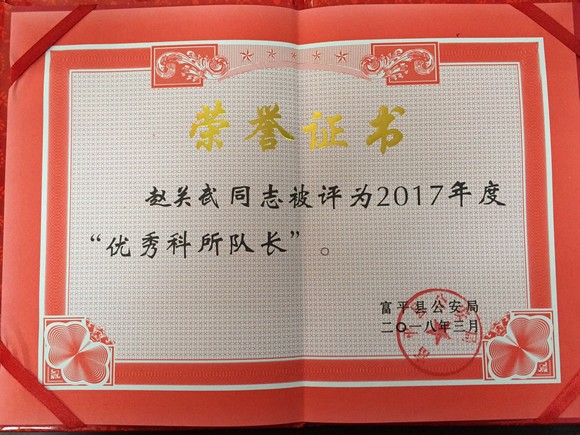 荣誉证书
赵关武同志被评为2017年度
“优秀科所队长”。
富平县公安局
二〇一八年三月